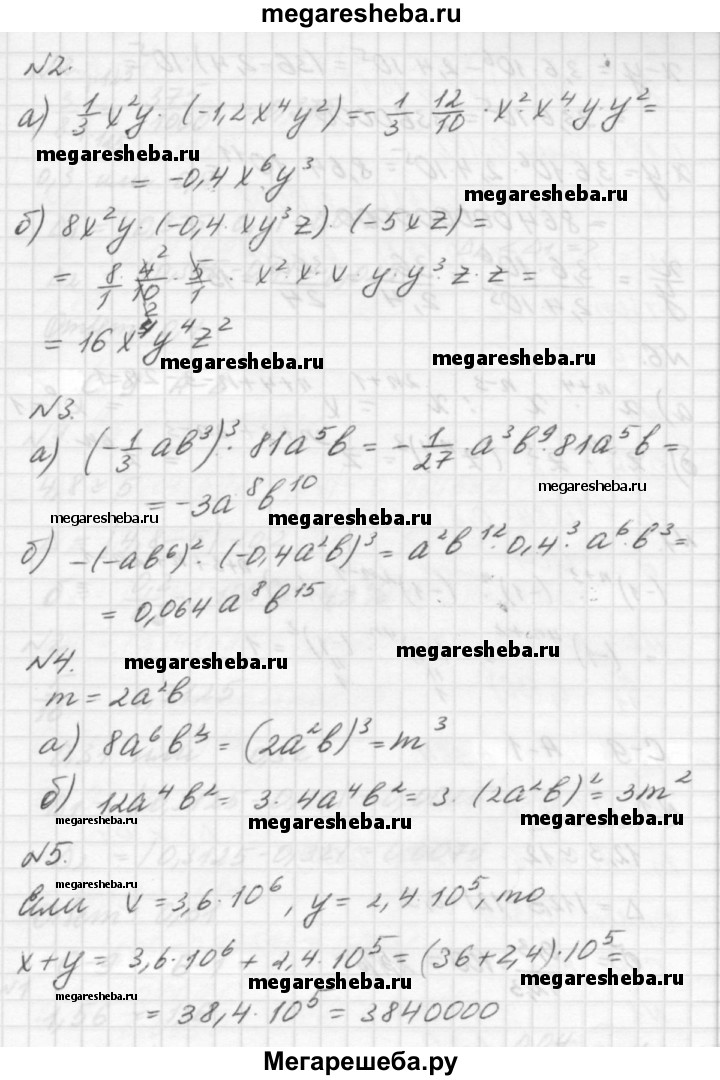 megaresheba.ru
№2.
а) 1/3 x²y · (-1,2x⁴y²) = - 1/3 · 12/10 · x² · x⁴ y · y² =
megaresheba.ru
= -0,4x⁶y³
megaresheba.ru
б) 8x²y · (-0,4 · xy³z) · (-5xz) =
= 8/1 · 4/10 · 5/1 · x² · x · x · y · y³ · z · z =
= 16x⁴y⁴z²
megaresheba.ru
megaresheba.ru
№3.
а) (-1/3 ab³)³ · 81a⁵b = -1/27 · a³b⁹ · 81a⁵b =
megaresheba.ru
= -3a⁸b¹⁰
megaresheba.ru
megaresheba.ru
б) -(-ab⁶)² · (-0,4a²b)³ = a²b¹² · 0,4³ · a⁶ · b³ =
= 0,064a⁸b¹⁵
№4.
megaresheba.ru
megaresheba.ru
m = 2a²b
а) 8a⁶b³ = (2a²b)³ = m³
б) 12a⁴b² = 3 · 4a⁴b² = 3 · (2a²b)² = 3m²
megaresheba.ru
megaresheba.ru
megaresheba.ru
№5.
megaresheba.ru
Если x = 3,6 · 10⁶, y = 2,4 · 10⁵, то
x + y = 3,6 · 10⁶ + 2,4 · 10⁵ = (36 + 2,4) · 10⁵ =
megaresheba.ru
megaresheba.ru
megaresheba.ru
= 38,4 · 10⁵ = 3840000
Мегарешеба.ру